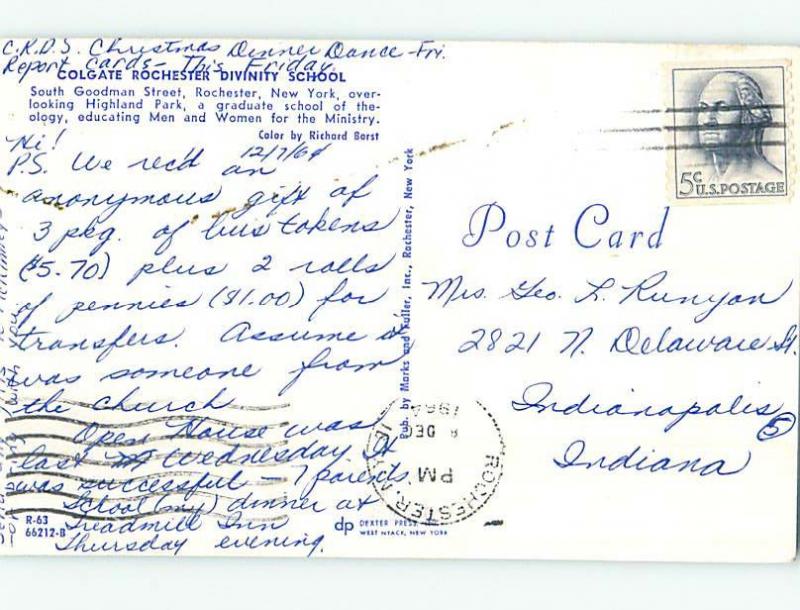 C.R.D.S. Christmas Dinner Dance - Fri.
Report cards - This Friday.
COLGATE ROCHESTER DIVINITY SCHOOL
South Goodman Street, Rochester, New York, over-
looking Highland Park, a graduate school of the-
ology, educating Men and Women for the Ministry.
Color by Richard Borst
12/7/64
Hi!
P.S. We rec'd an
anonymous gift of
3 pkg. of bus tokens
($5.70) plus 2 rolls
of pennies ($1.00) for
transfers. Assume it
was someone from
the church
Open House was
last Wednesday. It
was successful - 7 parents.
School (my) dinner at
Treadmill Inn
Thursday evening.
R-63
66212-B
dp DEXTER PRESS
WEST NYACK, NEW YORK
Pub. by Marks and Fuller, Inc., Rochester, New York
5c U.S. POSTAGE
Post Card
Mrs. Geo. L. Runyon
2821 N. Delaware St.
Indianapolis 5
Indiana
ROCHESTER, N.Y.
PM
8 DEC
1964